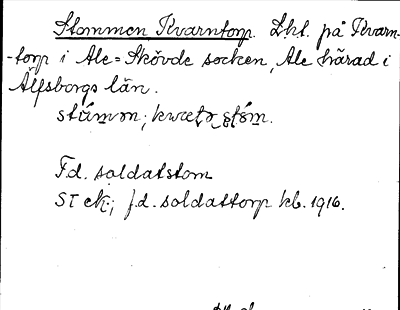 Stommen Kvarntorp. Lht. på Kvarn-
-torp i Ale-Skövde socken, Ale härad i
Älfsborgs län.
Fd. soldatstom
ST ek; f.d. soldattorp kb. 1916.